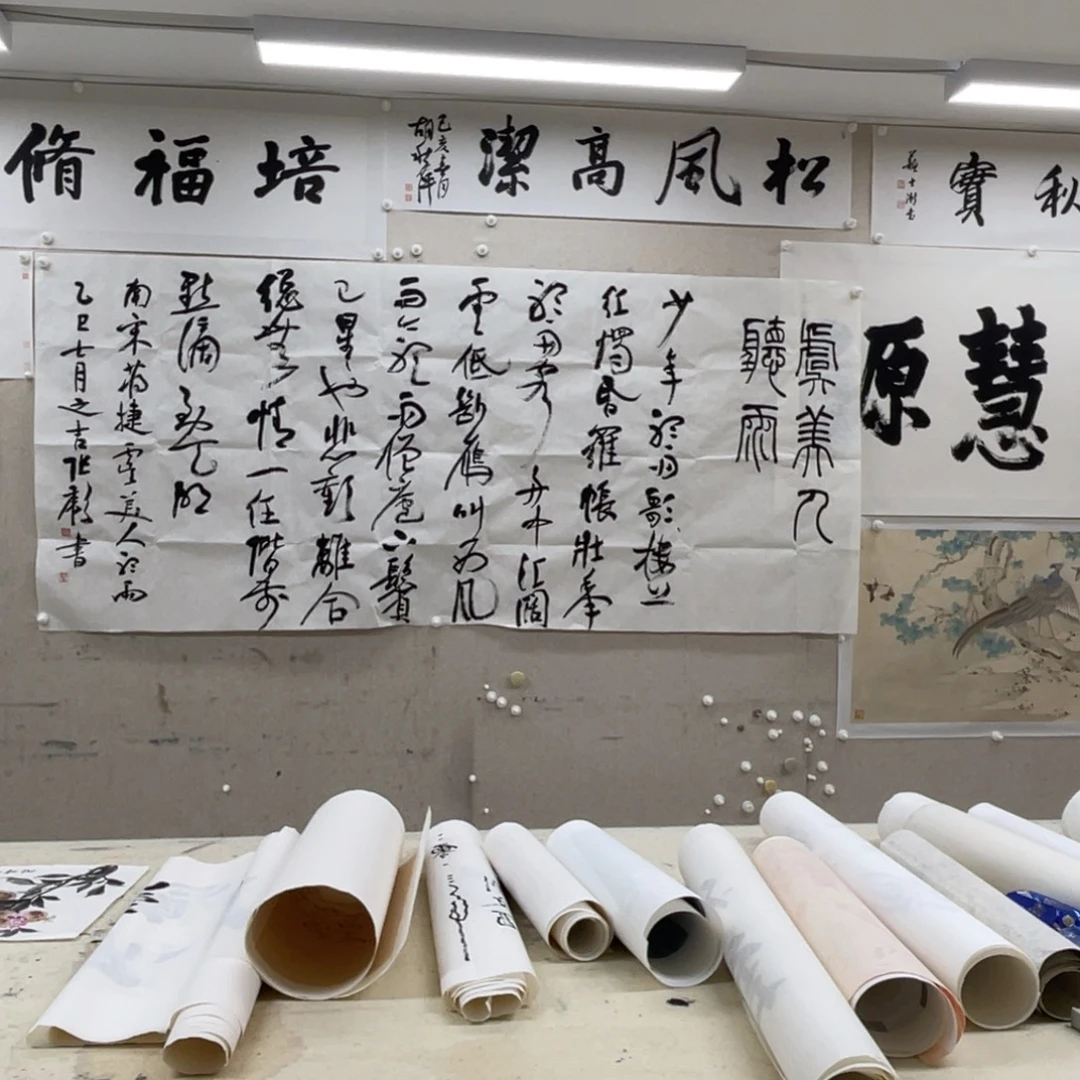 培福脩
松風高潔
己亥春月
胡秋萍
秋實
蘇士澍書
慧原
虞美人
聽雨
少年聽雨歌樓上
紅燭昏羅帳壯年
聽雨客舟中江闊
雲低斷雁叫西風
而今聽雨僧廬下鬢
已星〻也悲歡離合
總無情一任階前
點滴到天明
南宋蔣捷虞美人聽雨
乙巳七月之吉張書